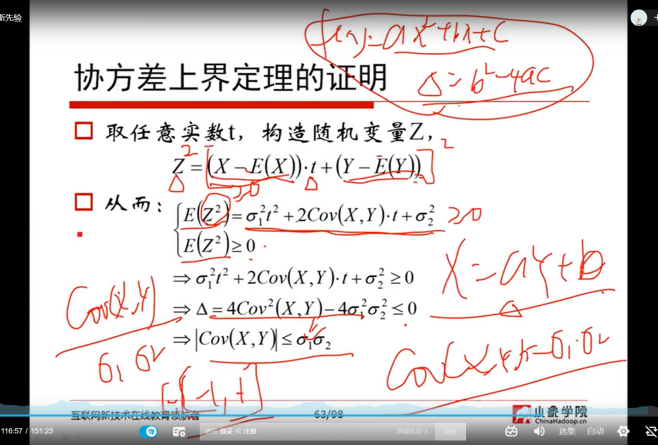 斯先验
f(x)=ax²+bx+c
Δ=b²-4ac
协方差上界定理的证明
取任意实数t，构造随机变量Z，
Z²=[(X-E(X))·t+(Y-E(Y))]²
Δ Δ
≥0
从而：
E(Z²)=σ₁²t²+2Cov(X,Y)·t+σ₂² ≥0
E(Z²)≥0
⇒σ₁²t²+2Cov(X,Y)·t+σ₂²≥0
X=aY+b
⇒Δ=4Cov²(X,Y)-4σ₁²σ₂²≤0
Cov(X,Y)
σ₁ σ₂
⇒|Cov(X,Y)|≤σ₁σ₂
[-1,+1]
互联网新技术在线教育领航者
63/98
小象学院
ChinaHadoop.cn
116:57 / 151:23
选集
自动